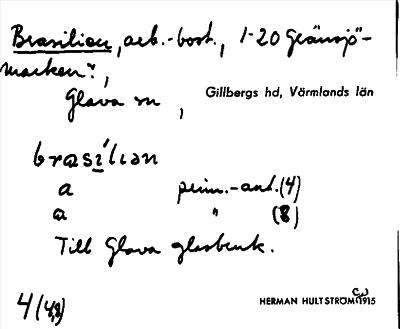 Brasilien, arb.-bost., 1-20 Gränsjö"-
marken",
Glava sn, Gillbergs hd, Värmlands län
brasílian
a prim.-ant. (4)
a " (8)
Till Glava glasbruk.
4 (4,8) HERMAN HULTSTRÖM 1915